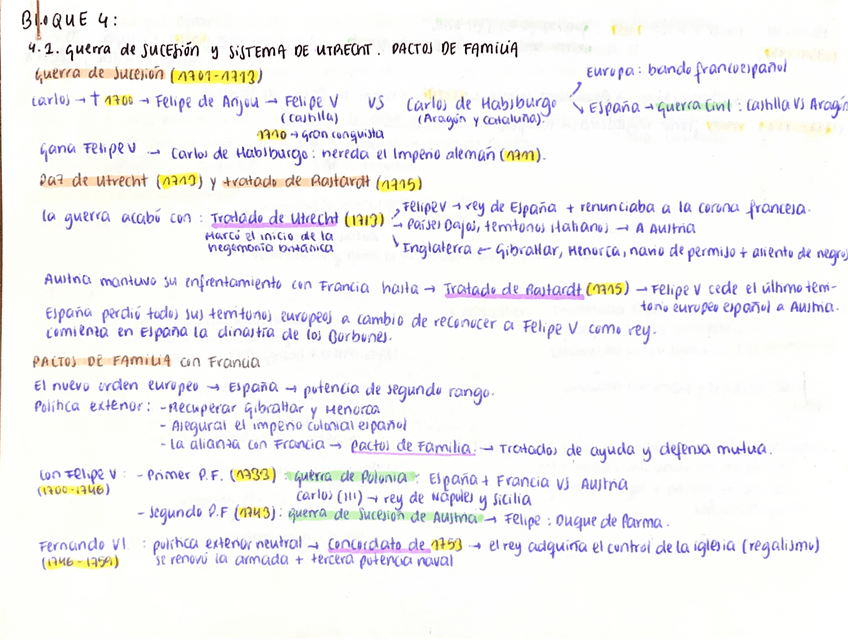 BLOQUE 4:
4.1. Guerra de sucesión y SISTEMA DE UTRECHT. PACTOS DE FAMILIA
Guerra de sucesión (1701-1713)
Carlos → † 1700 → Felipe de Anjou → Felipe V VS Carlos de Habsburgo → Europa: bando francoespañol
(Castilla) (Aragón y Cataluña). ↘ España → Guerra Civil: Castilla VS Aragón
1710 → Gran conquista
Gana Felipe V → Carlos de Habsburgo: hereda el Imperio alemán (1711).
Paz de Utrecht (1713) y tratado de Rastardt (1715)
La guerra acabó con: Tratado de Utrecht (1713) → Felipe V → rey de España + renunciaba a la corona francesa.
Marcó el inicio de la → Países Bajos, territorios italianos → A Austria
hegemonía británica ↘ Inglaterra ← Gibraltar, Menorca, navío de permiso + asiento de negros
Austria mantuvo su enfrentamiento con Francia hasta → Tratado de Rastardt (1715) → Felipe V cede el último terri-
torio europeo español a Austria.
España perdió todos sus territorios europeos a cambio de reconocer a Felipe V como rey.
Comienza en España la dinastía de los Borbones.
PACTOS DE FAMILIA con Francia
El nuevo orden europeo → España → potencia de segundo rango.
Política exterior: - Recuperar Gibraltar y Menorca
- Asegurar el imperio colonial español
- La alianza con Francia → Pactos de Familia → Tratados de ayuda y defensa mutua.
Con Felipe V: - Primer P.F. (1733): guerra de Polonia: España + Francia VS Austria
(1700-1746) Carlos (III) → rey de Nápoles y Sicilia
- Segundo P.F (1743): guerra de Sucesión de Austria → Felipe: Duque de Parma.
Fernando VI: política exterior neutral → Concordato de 1753 → el rey adquiría el control de la iglesia (regalismo)
(1746-1759) se renovó la armada + tercera potencia naval